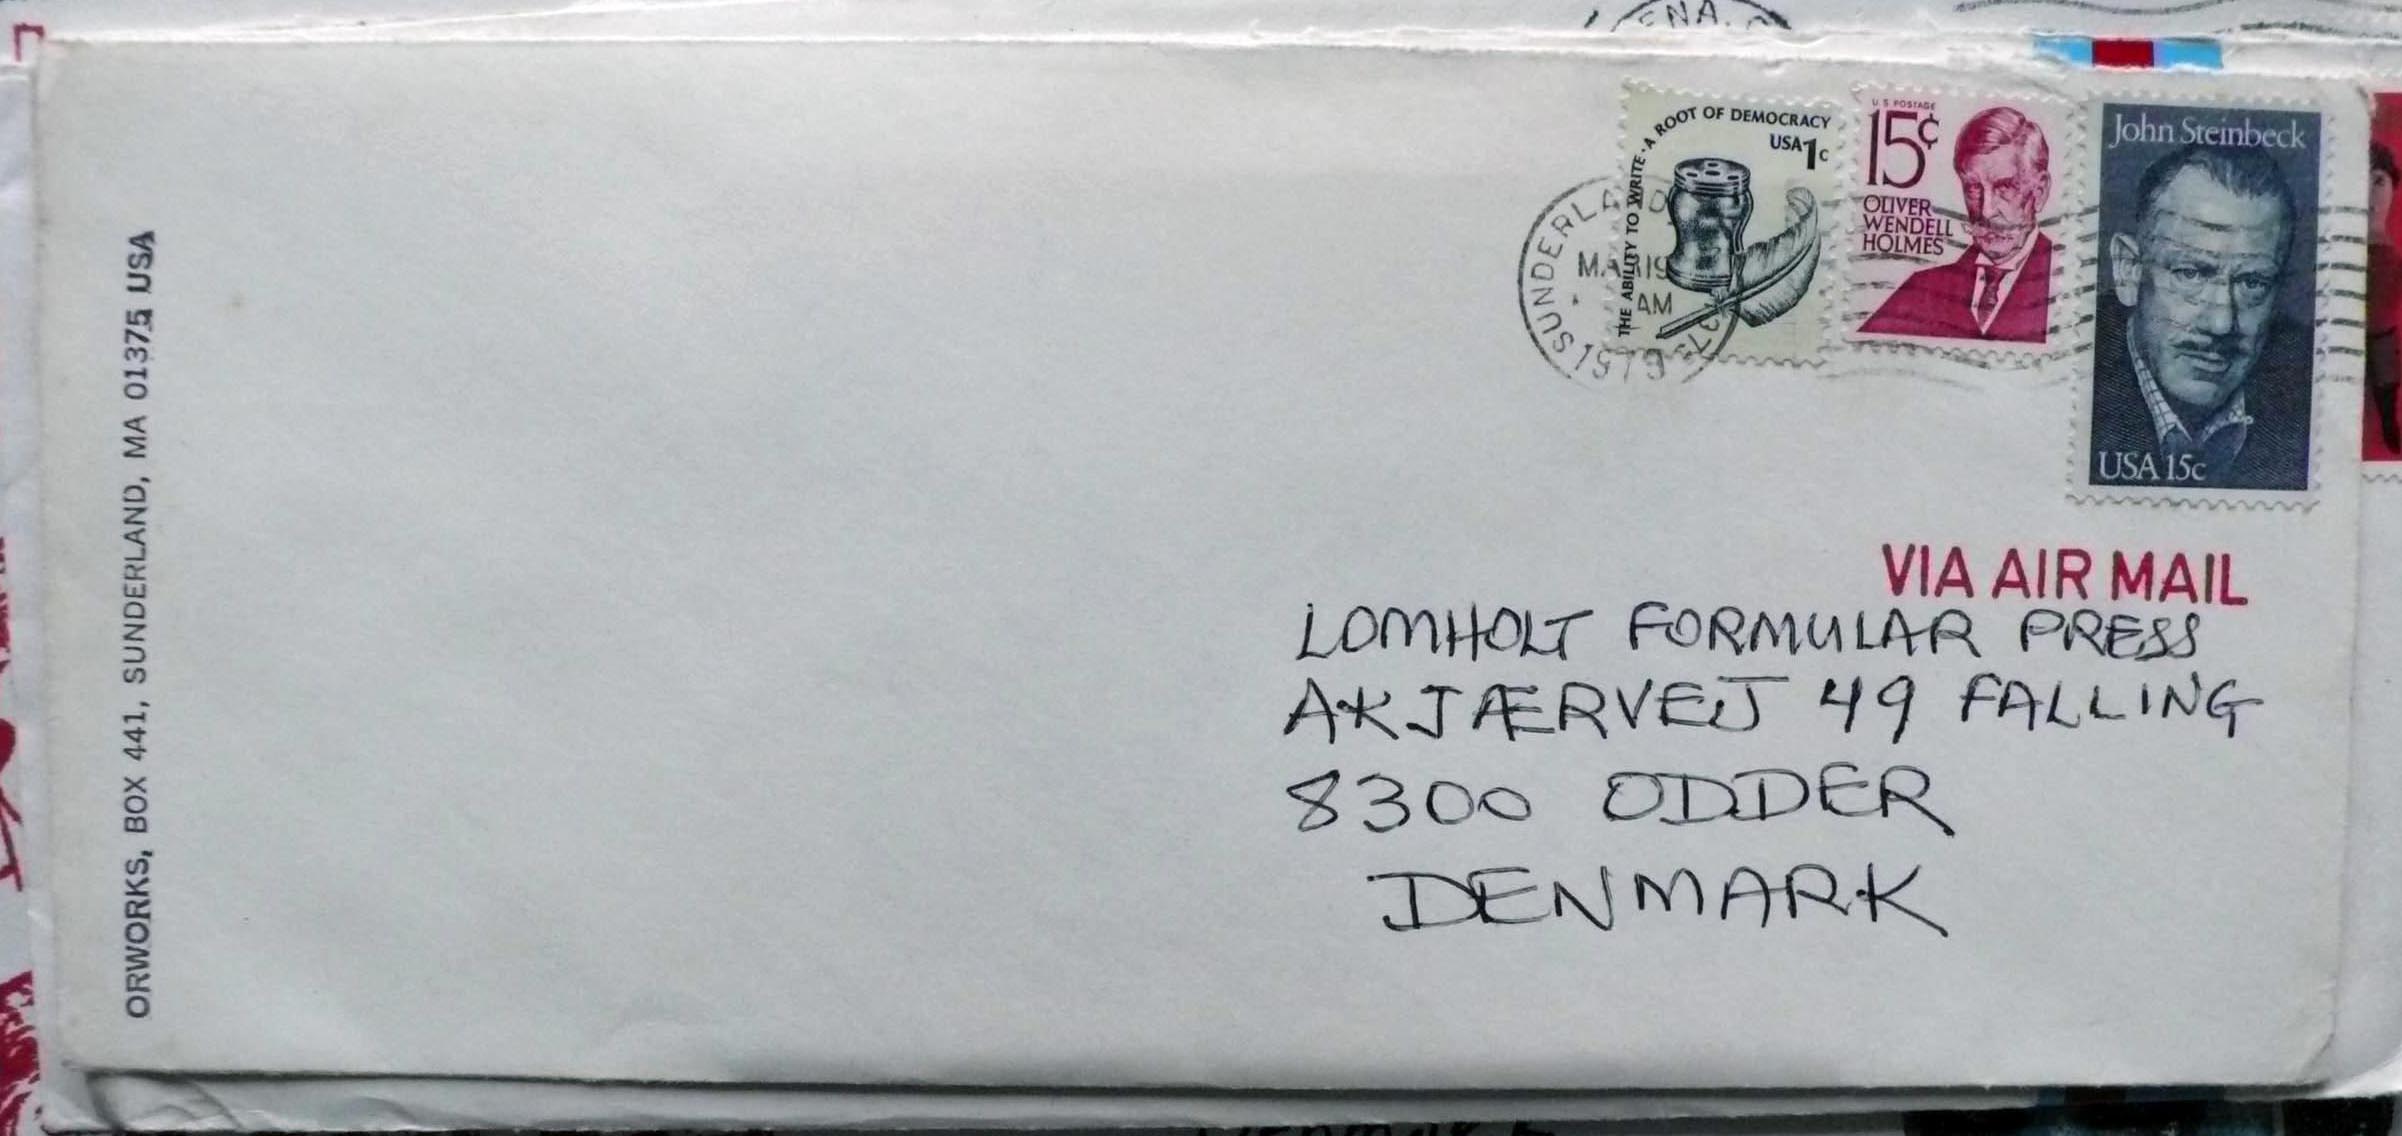 ORWORKS, BOX 441, SUNDERLAND, MA 01375 USA
THE ABILITY TO WRITE · A ROOT OF DEMOCRACY
USA 1c
U S POSTAGE
15¢
OLIVER
WENDELL
HOLMES
John Steinbeck
USA 15c
SUNDERLAND
MAR 19
AM
1979
VIA AIR MAIL
LOMHOLT FORMULAR PRESS
AKJÆRVEJ 49 FALLING
8300 ODDER
DENMARK